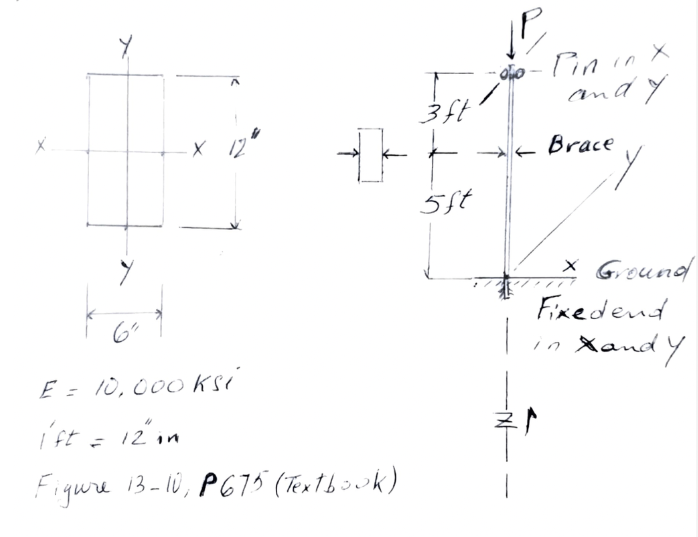 P
Y
Pin in X
and Y
3ft
X
X
12"
Brace
Y
5ft
Y
X
Ground
6"
Fixed end
in X and Y
E = 10,000 Ksi
1 ft = 12" in
Z
Figure 13-10, P675 (Textbook)